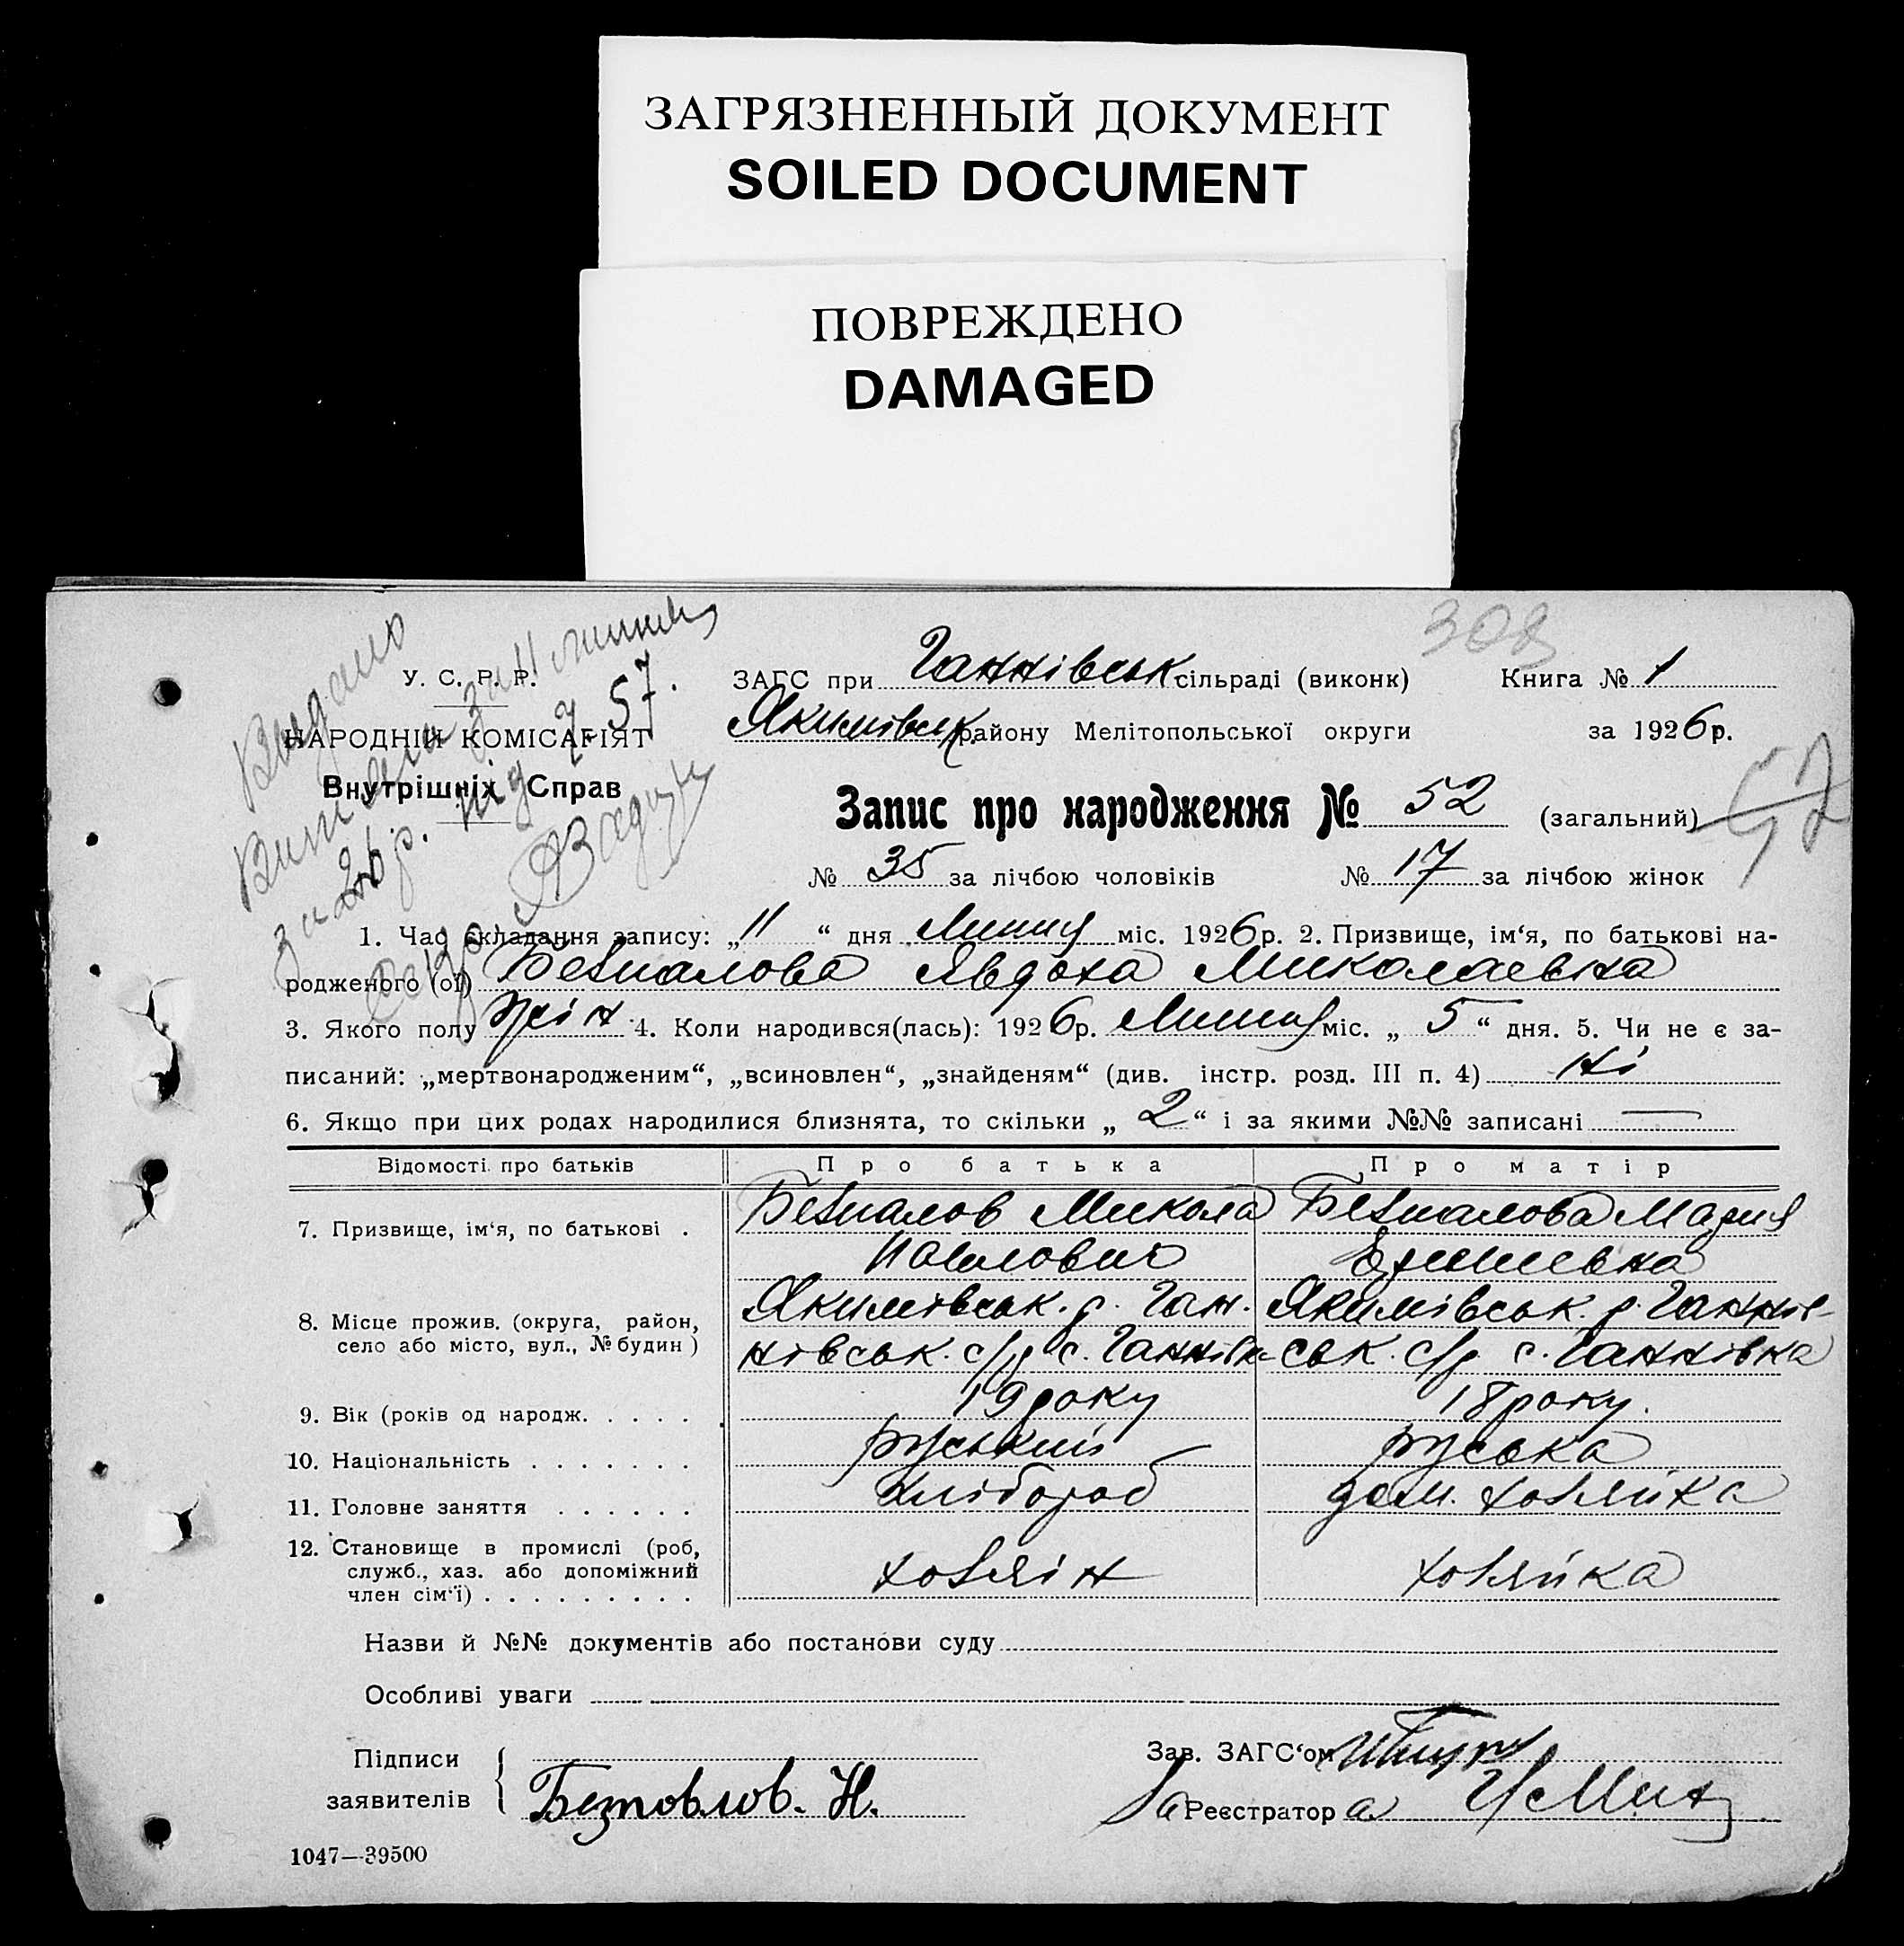 ЗАГРЯЗНЕННЫЙ ДОКУМЕНТ
SOILED DOCUMENT
ПОВРЕЖДЕНО
DAMAGED
308
Видано
У. С. Р. Р.
НАРОДНІЙ КОМІСАРІЯТ
Внутрішніх Справ
за 26 р. від 7 57.
ЗАГС при Ганнівськ сільраді (виконк) Книга № 1
Якимівськ. району Мелітопольської округи за 1926 р.
Запис про народження № 52 (загальний)
52
№ 35 за лічбою чоловіків № 17 за лічбою жінок
1. Час складання запису: „11“ дня Липня міс. 1926 р. 2. Призвище, ім‘я, по батькові на-
родженого (ої) Безпалова Явдоха Миколаевна
3. Якого полу жін. 4. Коли народився(лась): 1926 р. Липня міс. „5“ дня. 5. Чи не є за-
писаний: „мертвонародженим“, „всиновлен“, „знайденям“ (див. інстр. розд. III п. 4) Ні
6. Якщо при цих родах народилися близнята, то скільки „2“ і за якими №№ записані —
Відомості про батьків Про батька Про матір
7. Призвище, ім‘я, по батькові . Безпалов Микола Безпалова Мария
Павлович
8. Місце прожив. (округа, район, село або місто, вул., № будин) Якимівськ. р. Ган- Якимівськ. р. Ганнів-
нівськ. с/р с. Ганнівка ськ. с/р с. Ганнівка
9. Вік (років од народж. . . . . . 19 року 18 року.
10. Національність . . . . . . . руський руська
11. Головне заняття . . . . . . Хлібороб дом. хозяйка
12. Становище в промислі (роб, служб., хаз. або допоміжний член сім‘ї) . . . . . . . . . хозяін хозяйка
Назви й №№ документів або постанови суду
Особливі уваги
Підписи
заявителів
Безповлов. Н.
Зав. ЗАГС‘ом
За Реєстратора
1047—39500